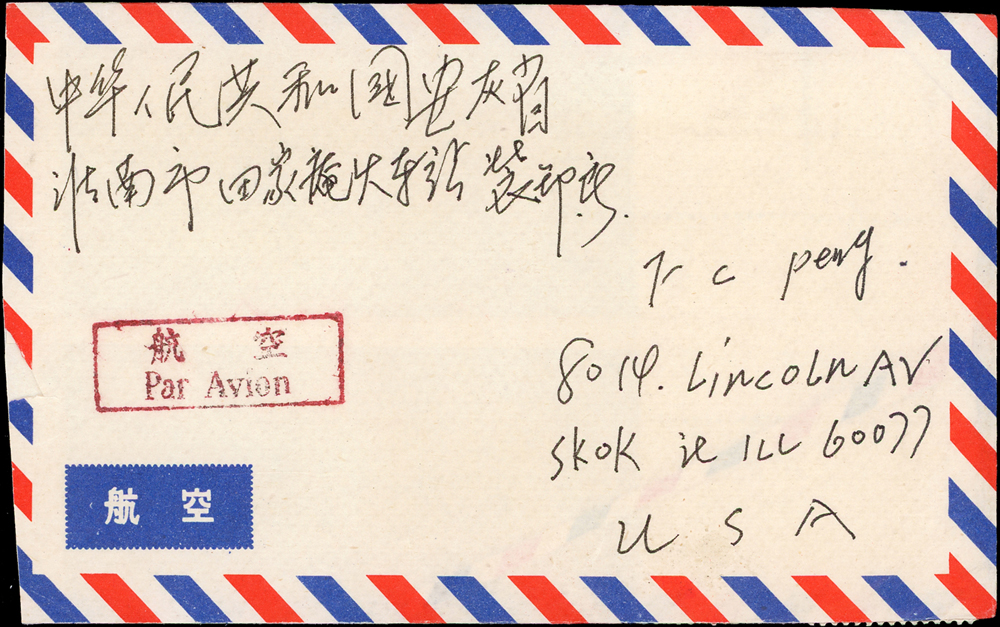 中华人民共和國安灰省
淮南市田家火车站装卸
c peng.
8014. Lincoln AV
SKOK ie ILL 60077
U S A
航 空
Par Avion
航 空